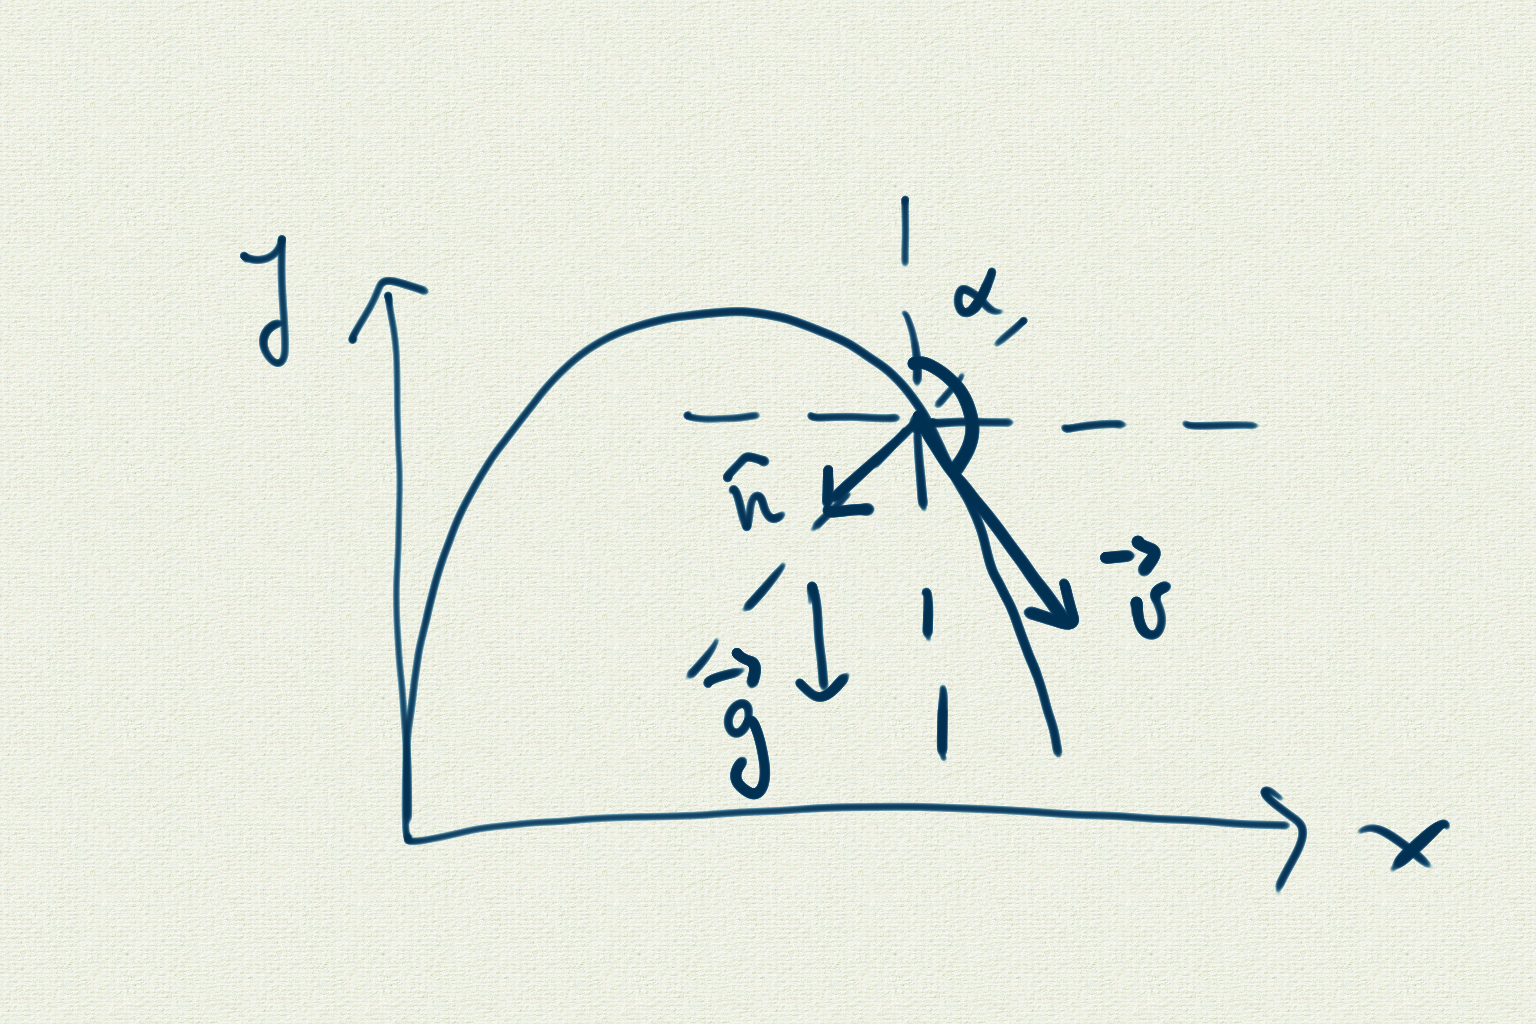 y
α
n̂
v⃗
g⃗
x